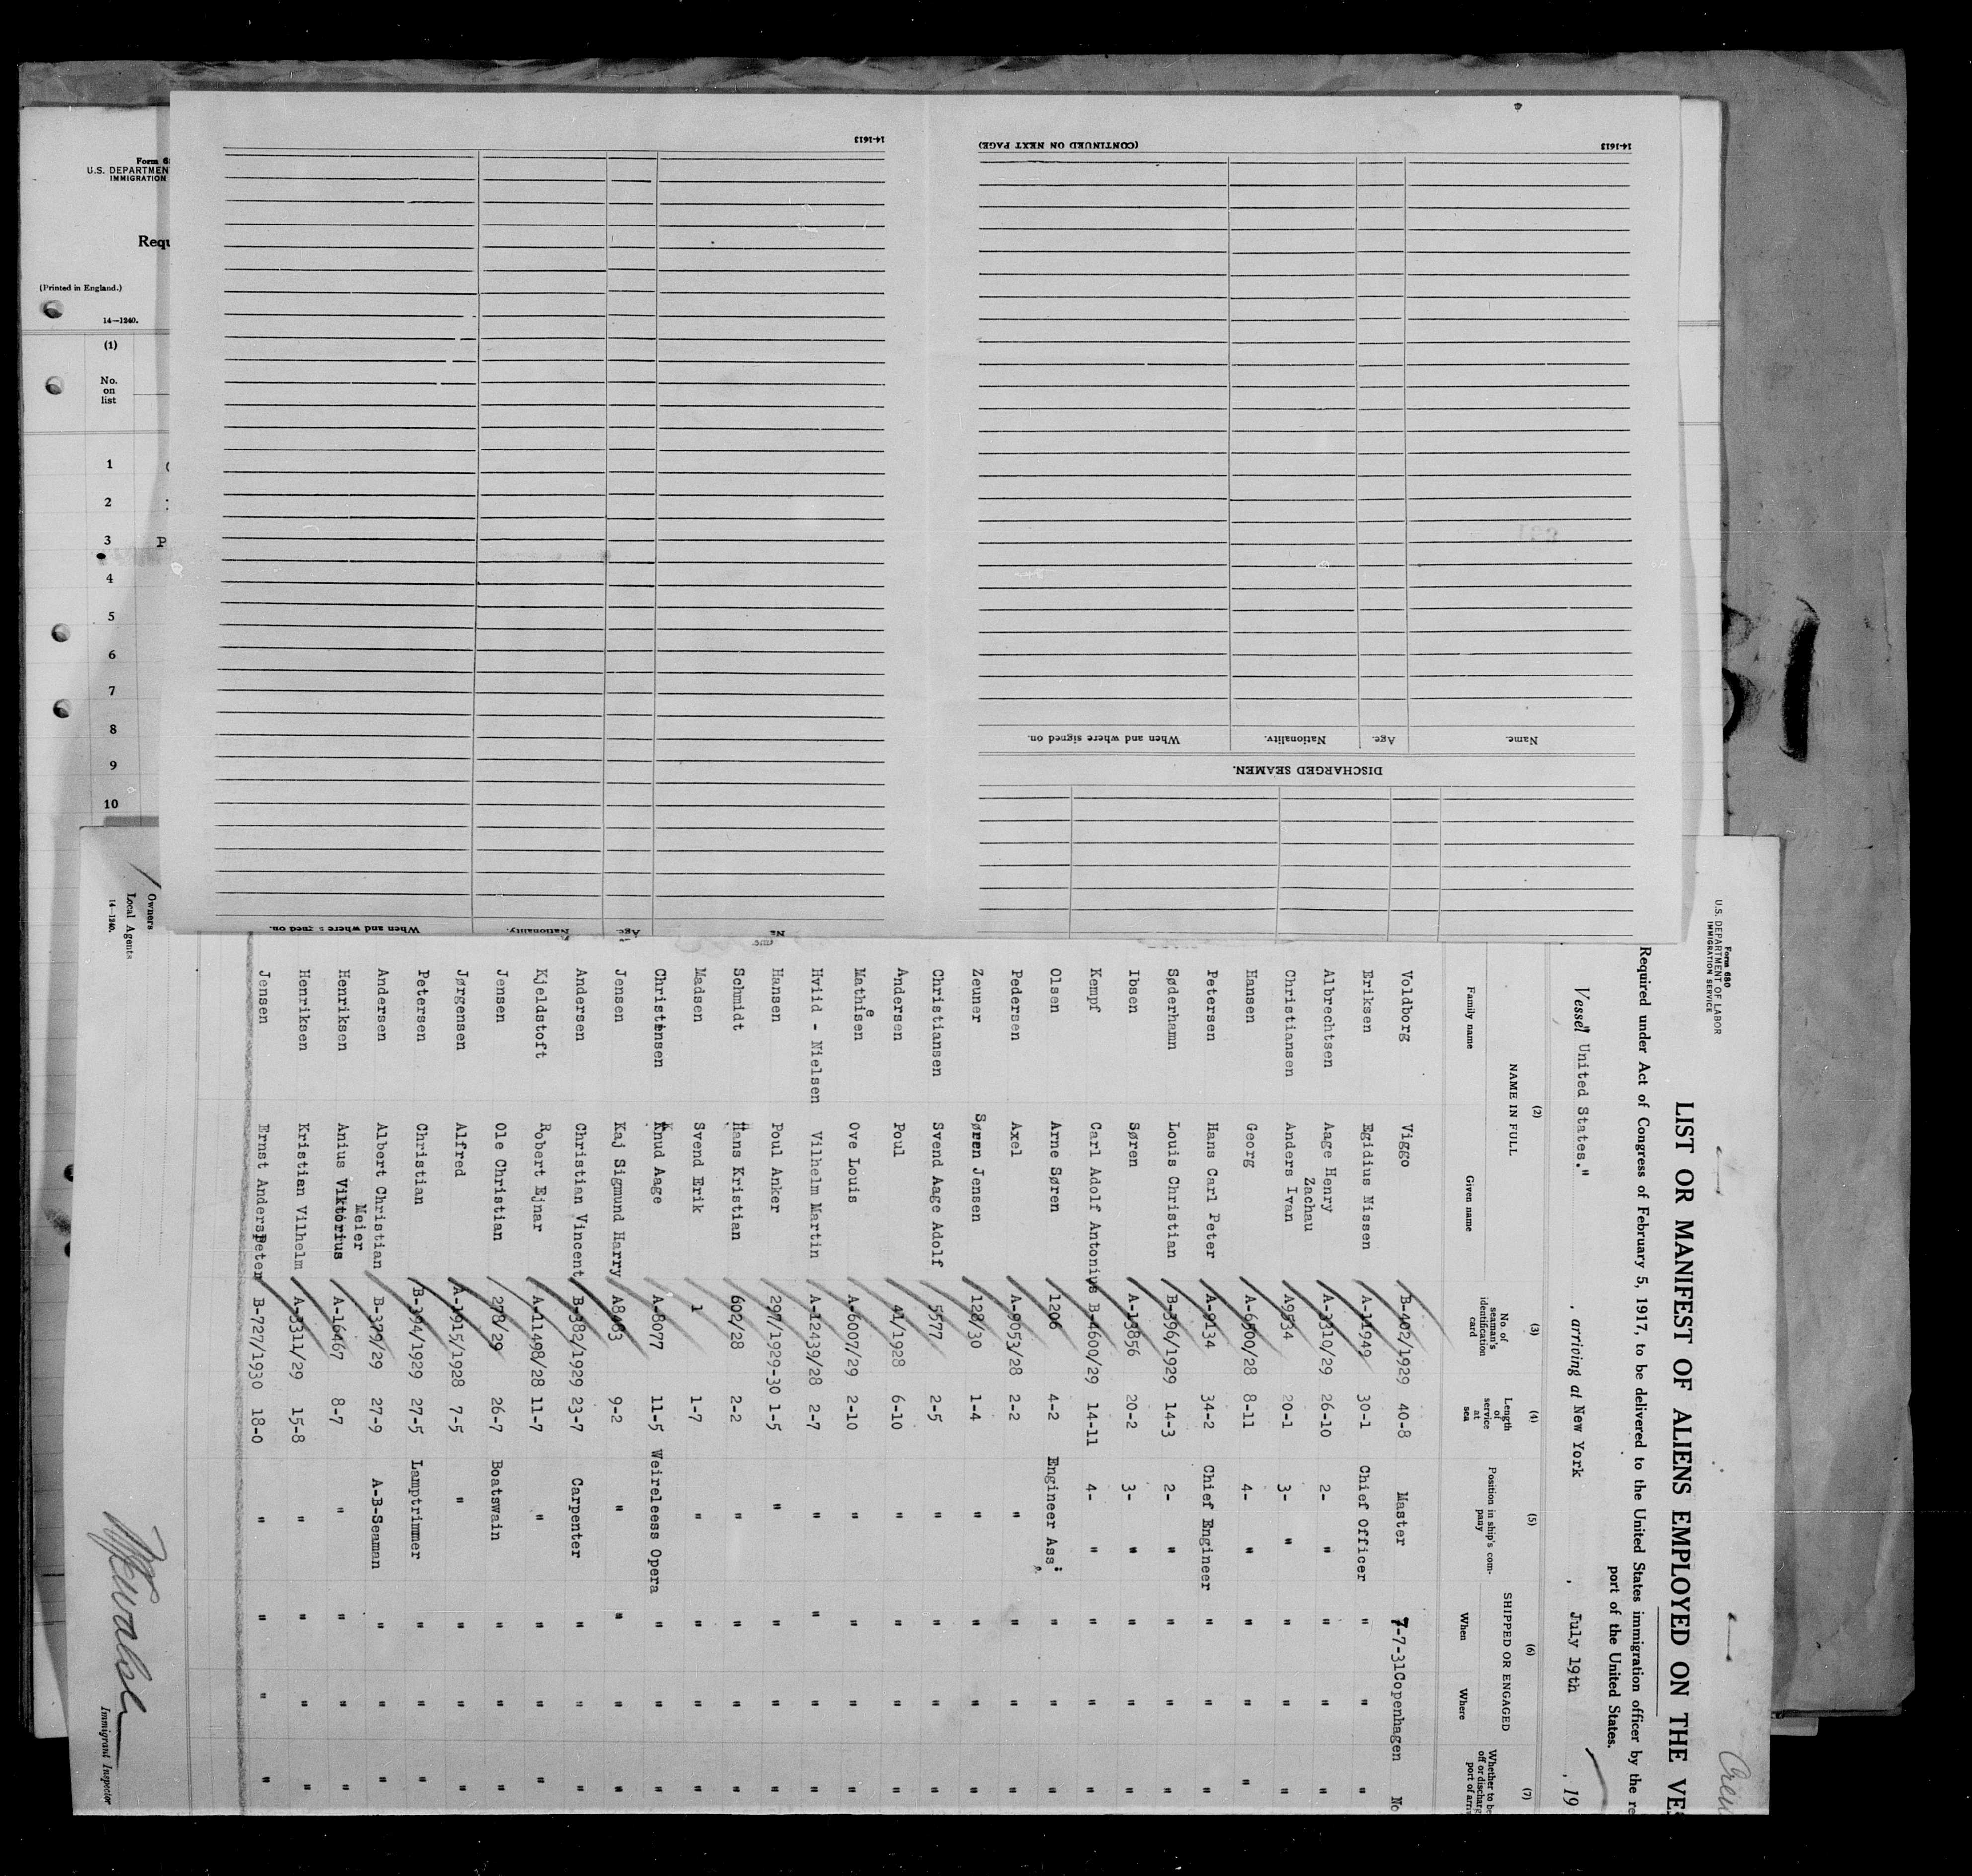 Form 68
U.S. DEPARTMEN
IMMIGRATION
Requ
(Printed in England.)
14—1240.
(1)
No.
on
list
1
2
3
4
5
6
7
8
9
10
14-1613
(CONTINUED ON NEXT PAGE)
14-1613
DISCHARGED SEAMEN.
Name. Age. Nationality. When and where signed on.
Na me. Age. Nationality. When and where s gned on.
Form 680
U.S. DEPARTMENT OF LABOR
IMMIGRATION SERVICE
Crew
LIST OR MANIFEST OF ALIENS EMPLOYED ON THE VES
Required under Act of Congress of February 5, 1917, to be delivered to the United States immigration officer by the re
port of the United States.
Vessel "United States." , arriving at New York , July 19th , 19
(2) (3) (4) (5) (6) (7)
NAME IN FULL
Family name Given name
No. of seaman's identification card
Length of service at sea
Position in ship's company
SHIPPED OR ENGAGED
When Where
Whether to be
off or discharg
port of arriv
Voldborg Viggo B-402/1929 40-8 Master 7-7-31 Copenhagen No
Eriksen Egidius Nissen A-11949 30-1 Chief Officer " " "
Albrechtsen Aage Henry A-3310/29 26-10 2- " " " "
Zachau
Christiansen Anders Ivan A9534 20-1 3- " " " "
Hansen Georg A-6500/28 8-11 4- " " " "
Petersen Hans Carl Peter A-9134 34-2 Chief Engineer " " "
Søderhamn Louis Christian B-396/1929 14-3 2- " " " "
Ibsen Søren 20-2 3- " " " "
Kempf Carl Adolf Antonius B-4600/29 14-11 4- " " " "
Olsen Arne Søren 1206 4-2 Engineer Ass: " " "
Pedersen Axel A-9053/28 2-2 " " " "
Zeuner Søren Jensen 128/30 1-4 " " " "
Christiansen Svend Aage Adolf 5577 2-5 " " " "
Andersen Poul 41/1928 6-10 " " " "
Mathiesen Ove Louis A-6007/29 2-10 " " " "
Hviid - Nielsen Vilhelm Martin A-12439/28 2-7 " " " "
Hansen Poul Anker 297/1929-30 1-5 " " " "
Schmidt Hans Kristian 602/28 2-2 " " " "
Madsen Svend Erik 1 1-7 " " " "
Christensen Knud Aage A-8077 11-5 Weireleess Opera " " "
Jensen Kaj Sigmund Harry 9-2 " " " "
Andersen Christian Vincent B-382/1929 23-7 Carpenter " " "
Kjeldstoft Robert Ejnar A-11498/28 11-7 " " " "
Jensen Ole Christian 278/29 26-7 Boatswain " " "
Jørgensen Alfred A-1915/1928 7-5 " " " "
Petersen Christian B-394/1929 27-5 Lamptrimmer " " "
Andersen Albert Christian B-379/29 27-9 A-B-Seaman " " "
Meier
Henriksen Anius Viktorius A-16467 8-7 " " " "
Henriksen Kristian Vilhelm A-3311/29 15-8 " " " "
Jensen Ernst Anders Peter B-727/1930 18-0 " " " "
Owners
Local Agents
14—1240.
Immigrant Inspector